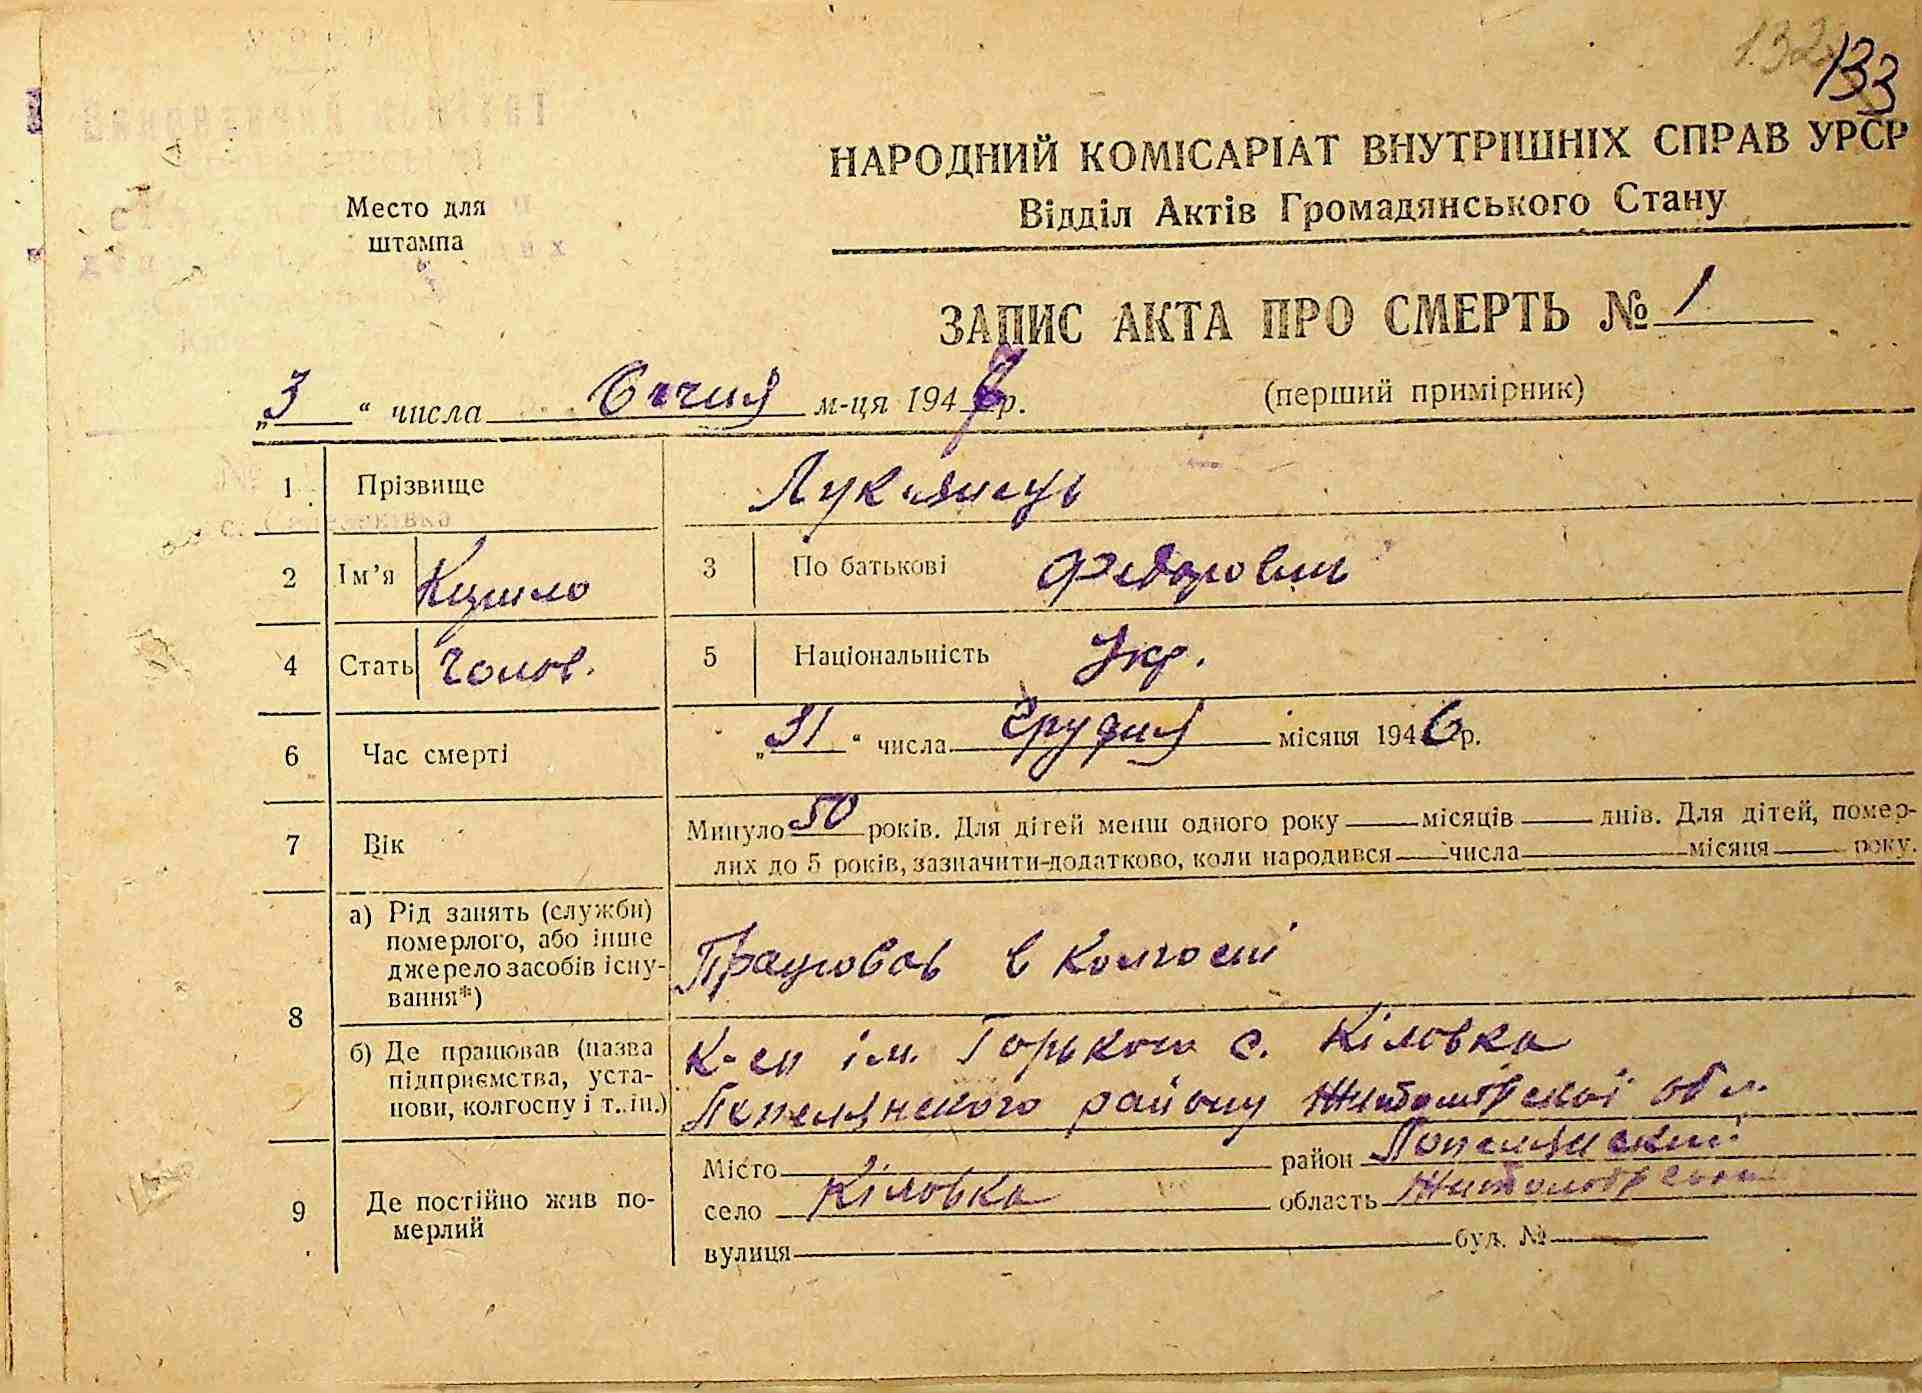 132
133
Место для
штампа
НАРОДНИЙ КОМІСАРІАТ ВНУТРІШНІХ СПРАВ УРСР
Відділ Актів Громадянського Стану
ЗАПИС АКТА ПРО СМЕРТЬ № 1
„3“ числа Січня м-ця 1947 р.
(перший примірник)
1 Прізвище Лук'янець
2 Ім'я 3 По батькові Федорович
4 Стать Чолов. 5 Національність Укр.
6 Час смерті „31“ числа Грудня місяця 1946 р.
7 Вік Минуло 50 років. Для дітей менш одного року — місяців — днів. Для дітей, помер-
лих до 5 років, зазначити-додатково, коли народився — числа — місяця — року.
8 а) Рід занять (служби)
померлого, або інше
джерело засобів існу-
вання*)
Працював в колгоспі
б) Де працював (назва
підприємства, уста-
нови, колгоспу і т. ін.)
К-сп ім. Горького с. Кіловка
Попелянского району Житомірскої обл.
9 Де постійно жив по-
мерлий
Місто — район Попелянский
село Кіловка область
вулиця — буд. № —